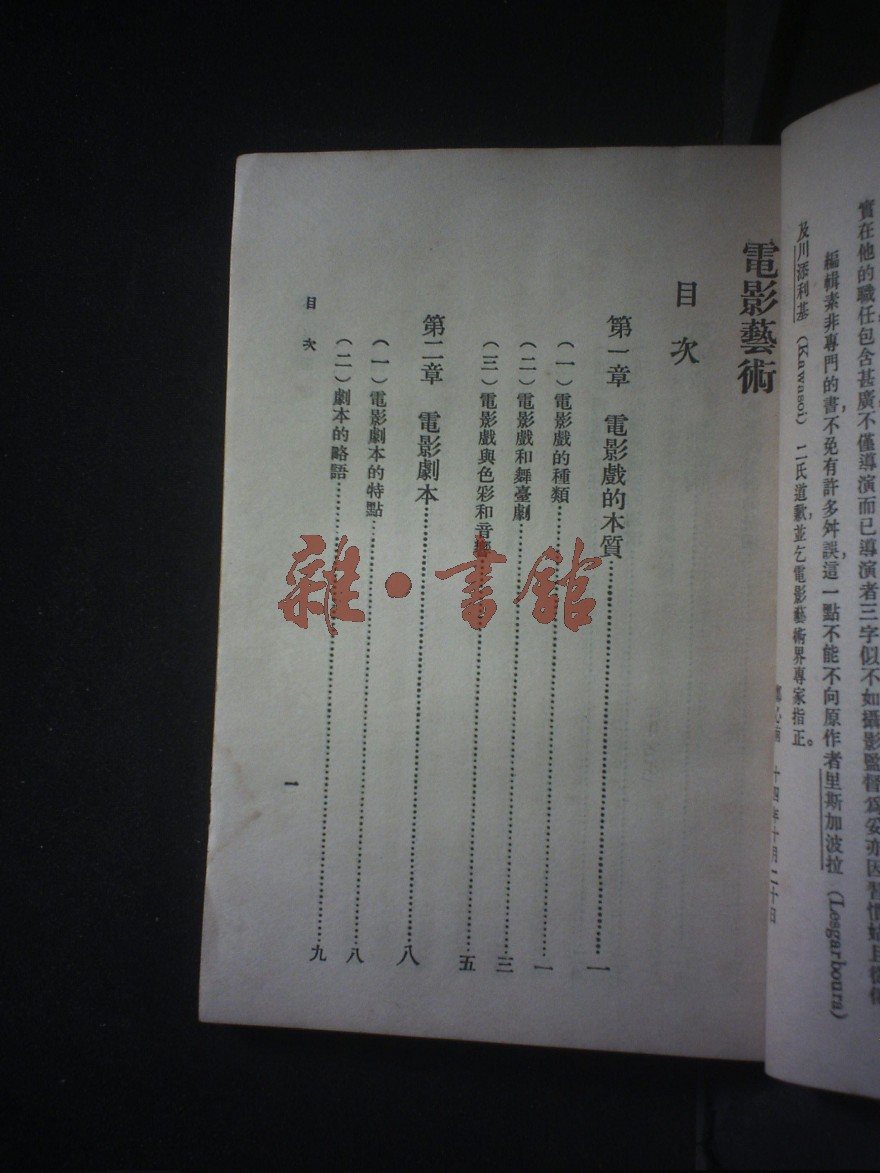 實在他的職任包含甚廣不僅導演而已導演者三字似不如攝影監督爲妥亦因習慣
編輯素非專門的書，不免有許多舛誤，這一點不能不向原作者里斯加波拉（Lesgarboura）
及川添利基（Kawasoi）二氏道歉，並乞電影藝術界專家指正。
十四年十月二十日
電影藝術
目次
第一章 電影戲的本質……一
（一）電影戲的種類……一
（二）電影戲和舞臺劇……三
（三）電影戲與色彩和音……五
第二章 電影劇本……八
（一）電影劇本的特點……八
（二）劇本的略語……九
目次
一
雜·書館